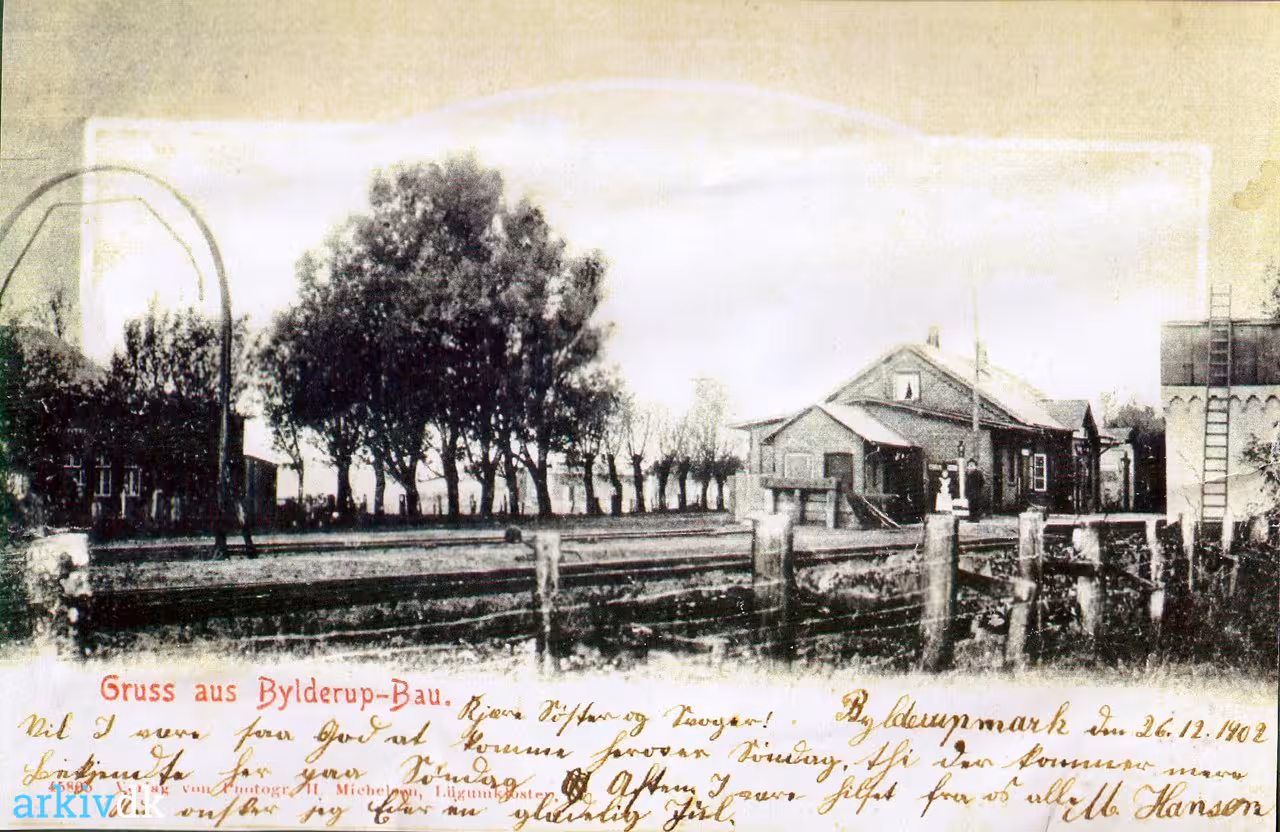 Gruss aus Bylderup-Bau.
Kjære Söster og Svoger!
Bylderupmark den 26.12.1902
Vil I være saa God at komme herover Söndag, thi der kommer mere
Bekjendte her paa Söndag Aften I være hilset fra os alle
45805 Verlag von Photogr. H. Michelsen, Lügumkloster
önsker jeg Eder en glædelig Jul.
M. Hansen
arkiv.dk